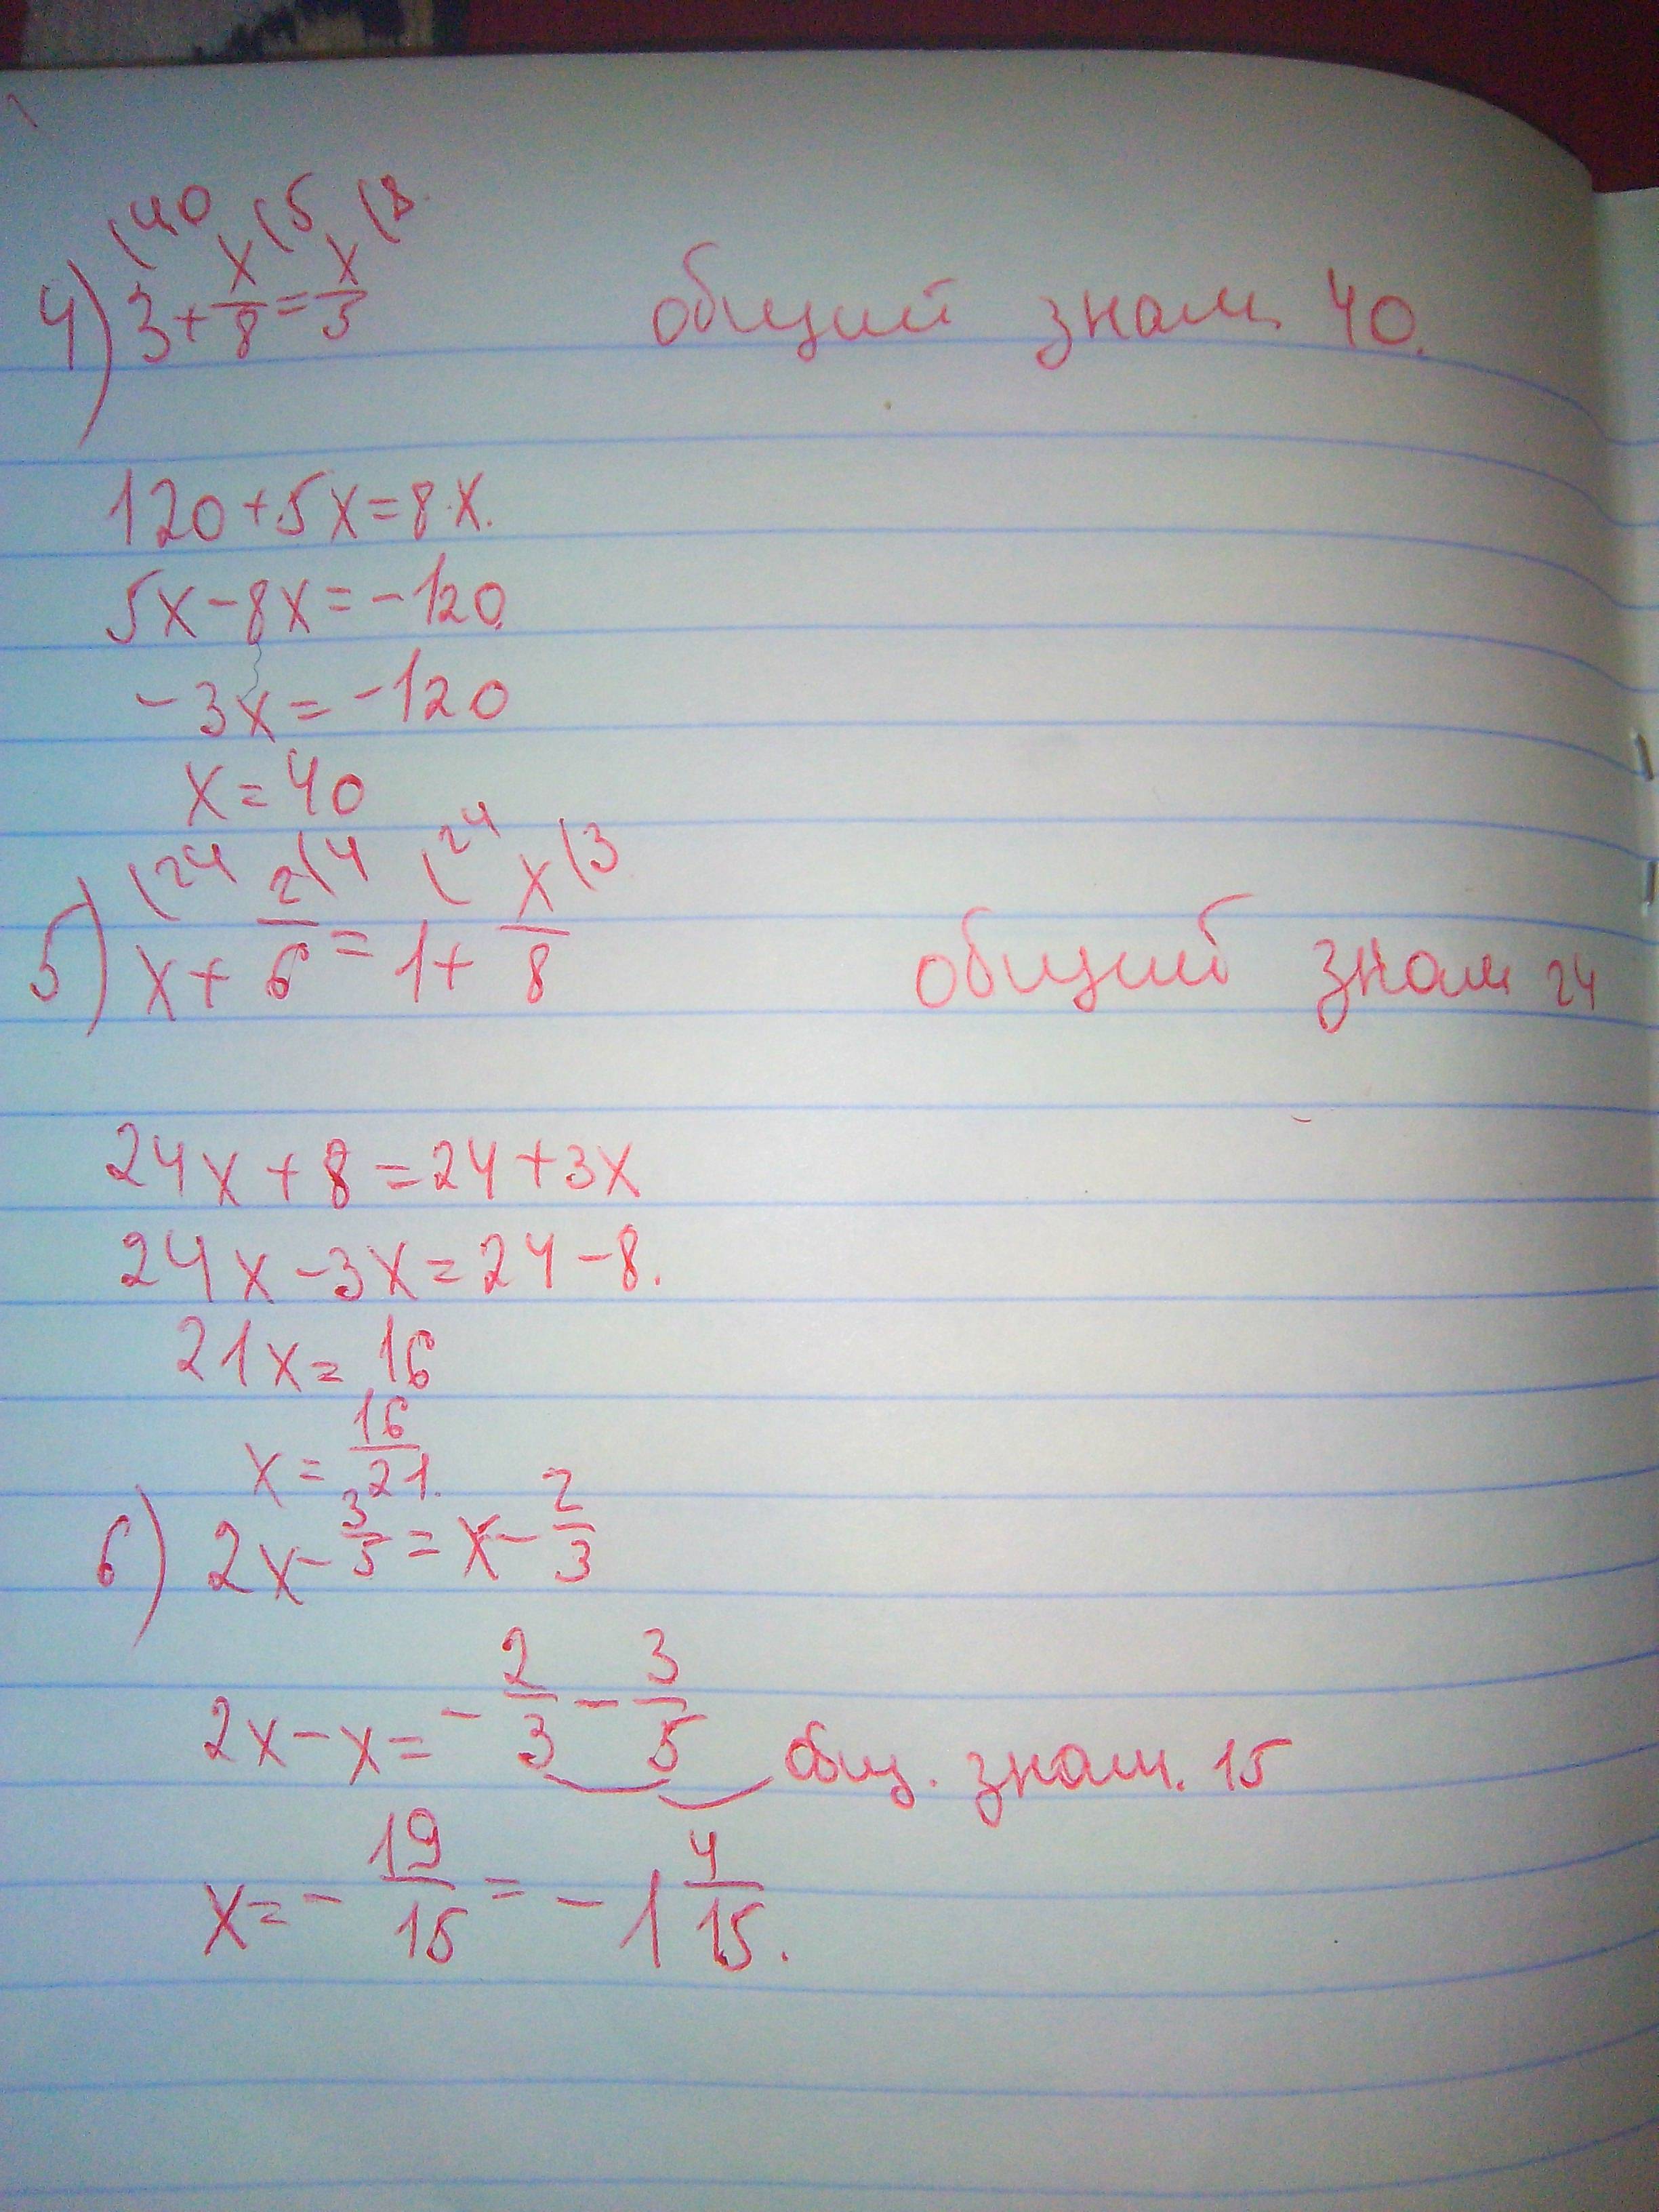 4) 3(40 + x/8(5 = x/5(8 общий знам. 40.
120+5x=8x.
5x-8x=-120
-3x=-120
x=40
5) x(24 + 2/6(4 = 1(24 + x/8(3 общий знам 24
24x+8=24+3x
24x-3x=24-8.
21x=16
x=16/21.
6) 2x-3/5=x-2/3
2x-x=-2/3-3/5 общ. знам. 15
x=-19/15=-1 4/15.